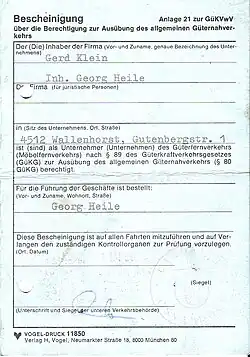 Bescheinigung
Anlage 21 zur GüKVwV
über die Berechtigung zur Ausübung des allgemeinen Güternahver-
kehrs
Der (Die) Inhaber der Firma (Vor- und Zuname, genaue Bezeichnung des Unter-
nehmens)
Gerd Klein
Inh. Georg Heile
Die Firma (für juristische Personen)
in (Sitz des Unternehmens, Ort, Straße)
4512 Wallenhorst, Gutenbergstr. 1
ist (sind) als Unternehmer (Unternehmen) des Güterfernverkehrs
(Möbelfernverkehrs) nach § 89 des Güterkraftverkehrsgesetzes
(GüKG) zur Ausübung des allgemeinen Güternahverkehrs (§ 80
GüKG) berechtigt.
Für die Führung der Geschäfte ist bestellt:
(Vor- und Zuname, Wohnort, Straße)
Georg Heile
Diese Bescheinigung ist auf allen Fahrten mitzuführen und auf Ver-
langen den zuständigen Kontrollorganen zur Prüfung vorzulegen.
(Ort, Datum)
(Siegel)
(Unterschrift und Siegel der unteren Verkehrsbehörde)
VOGEL-DRUCK 11850
Verlag H. Vogel, Neumarkter Straße 18, 8000 München 80